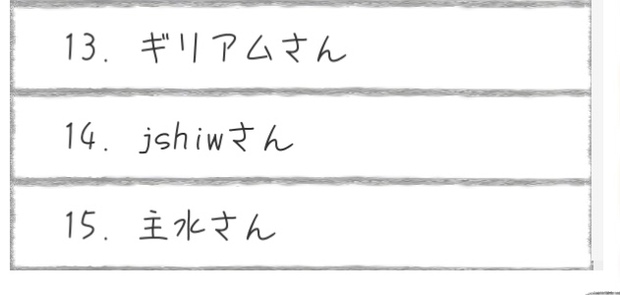 13. ギリアムさん
14. jshiwさん
15. 主水さん